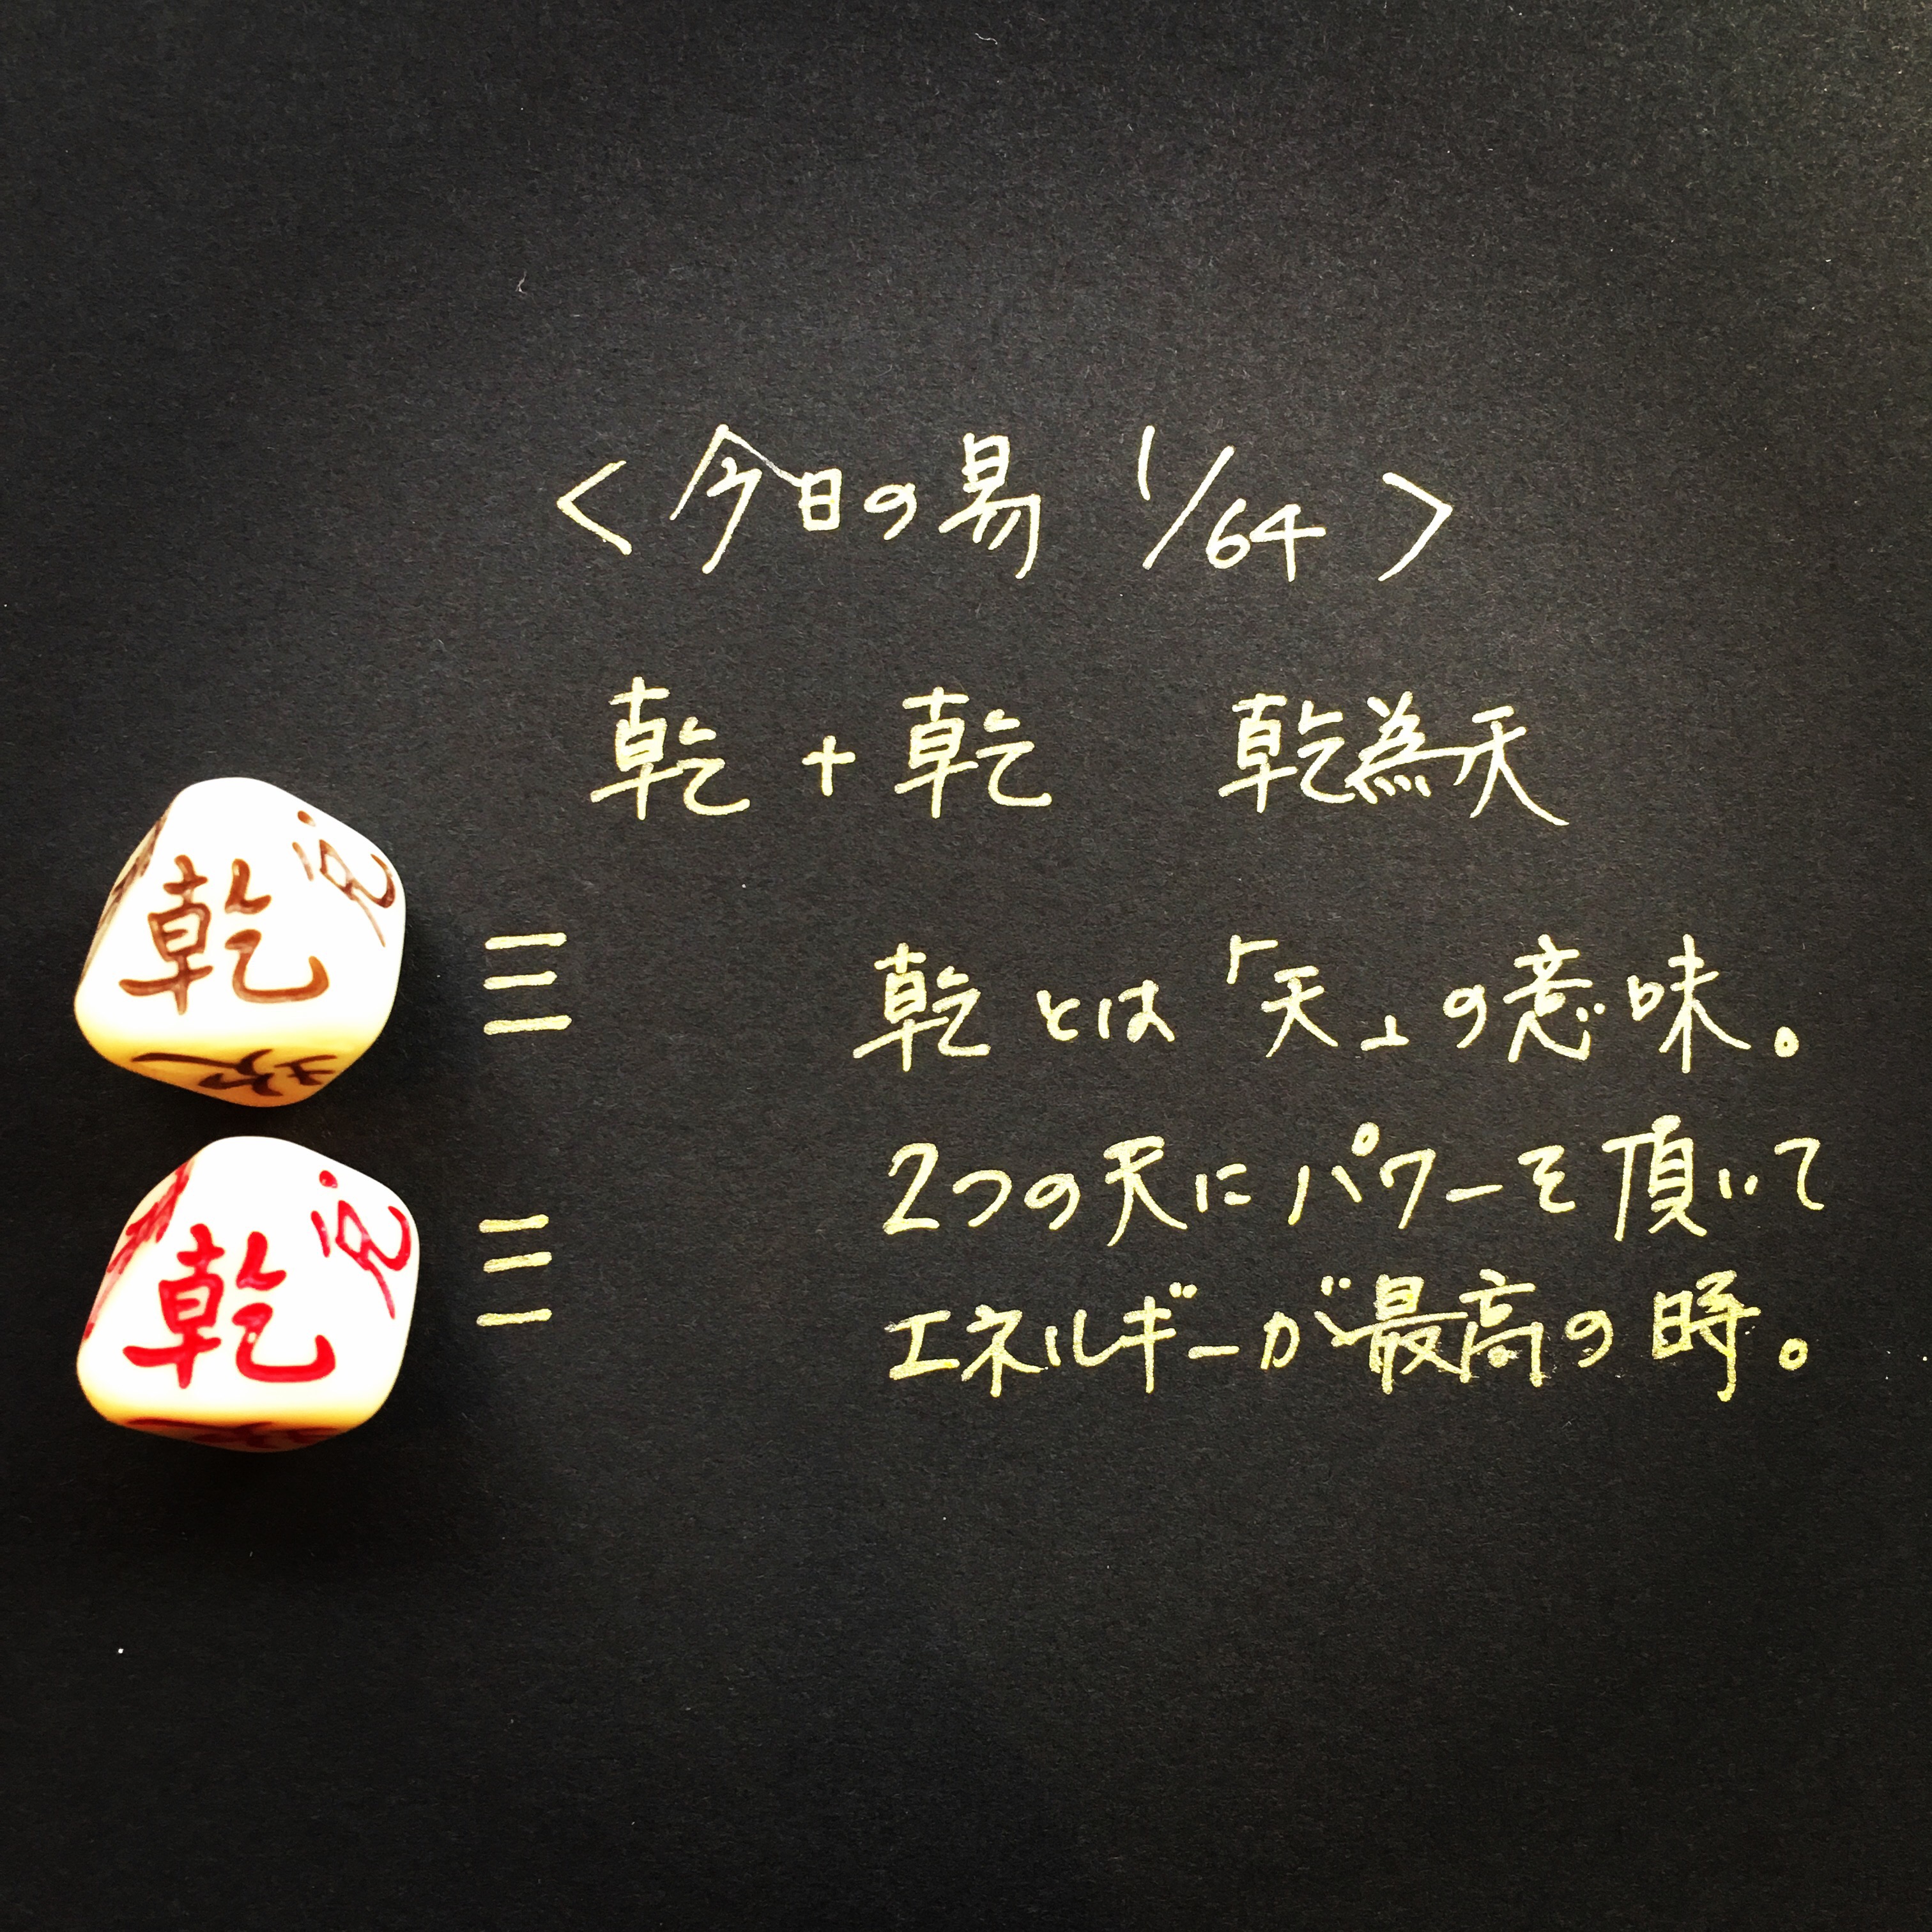 <今日の易 1/64>
乾+乾 乾為天
乾
兌
乾とは「天」の意味。
2つの天にパワーを頂いて
乾
兌
エネルギーが最高の時。